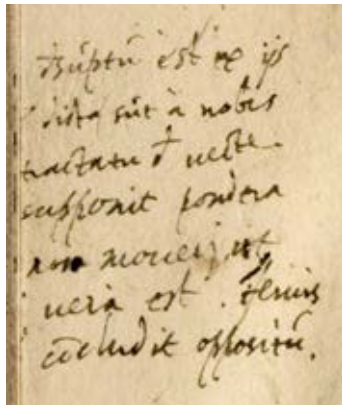 est ex ijs
dicta sūt à nobis
tractatu đ vecte.
supponit pondera
non moueri, ut
uera est.
cōcludit oppositū.